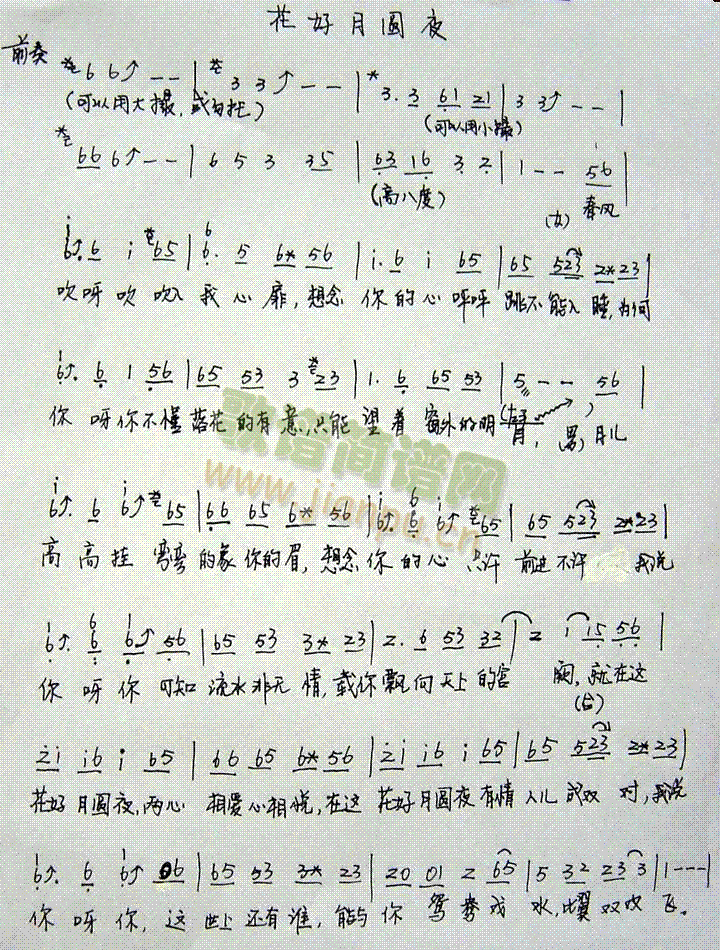 花好月圆夜
前奏 6 6 - - | 3 3 - - | 3. 3 61 21 | 3 3 - - |
(可以用大撮,或勾托) (可以用小撮)
66 6 - - | 6 5 3 35 | 63 16 3 2 | 1 - - 56 |
(高八度) (女) 春风
6. 6 i 65 | 6. 5 6* 56 | i. 6 i 65 | 65 523 2*23 |
吹呀吹 吹入 我 心 扉,想念 你 的 心 呯呯 跳不能入 睡,为何
6. 6 1 56 | 65 53 3 23 | 1. 6 65 53 | 5 - - 56 |
你 呀你不懂 落花 的有 意,只能 望着 窗外的明 月, (男) 月儿
歌谱简谱网
www.jianpu.cn
6. 6 6 65 | 66 65 6* 56 | 6. 6 6 65 | 65 523 2*23 |
高 高挂 弯弯 的象 你的 眉,想念 你 的 心 只许 前进 不许 我说
6. 6 6 56 | 65 53 3* 23 | 2. 6 53 32 | 2 i 15 56 |
你 呀 你 可知 流水 非无 情,载你 飘向 天上 的宫 阙,就在这
(合)
2i i6 i 65 | 66 65 6* 56 | 2i i6 i 65 | 65 523 2*23 |
花好 月圆 夜,两心 相爱 心相 悦,在这 花好 月圆 夜 有情 人儿 成双 对,我说
6. 6 6 06 | 65 53 3* 23 | 20 01 2 65 | 5 32 23 3 | 1--- |
你 呀 你,这 世上 还有 谁,能与 你 鸳鸯戏 水,比翼 双双 飞。